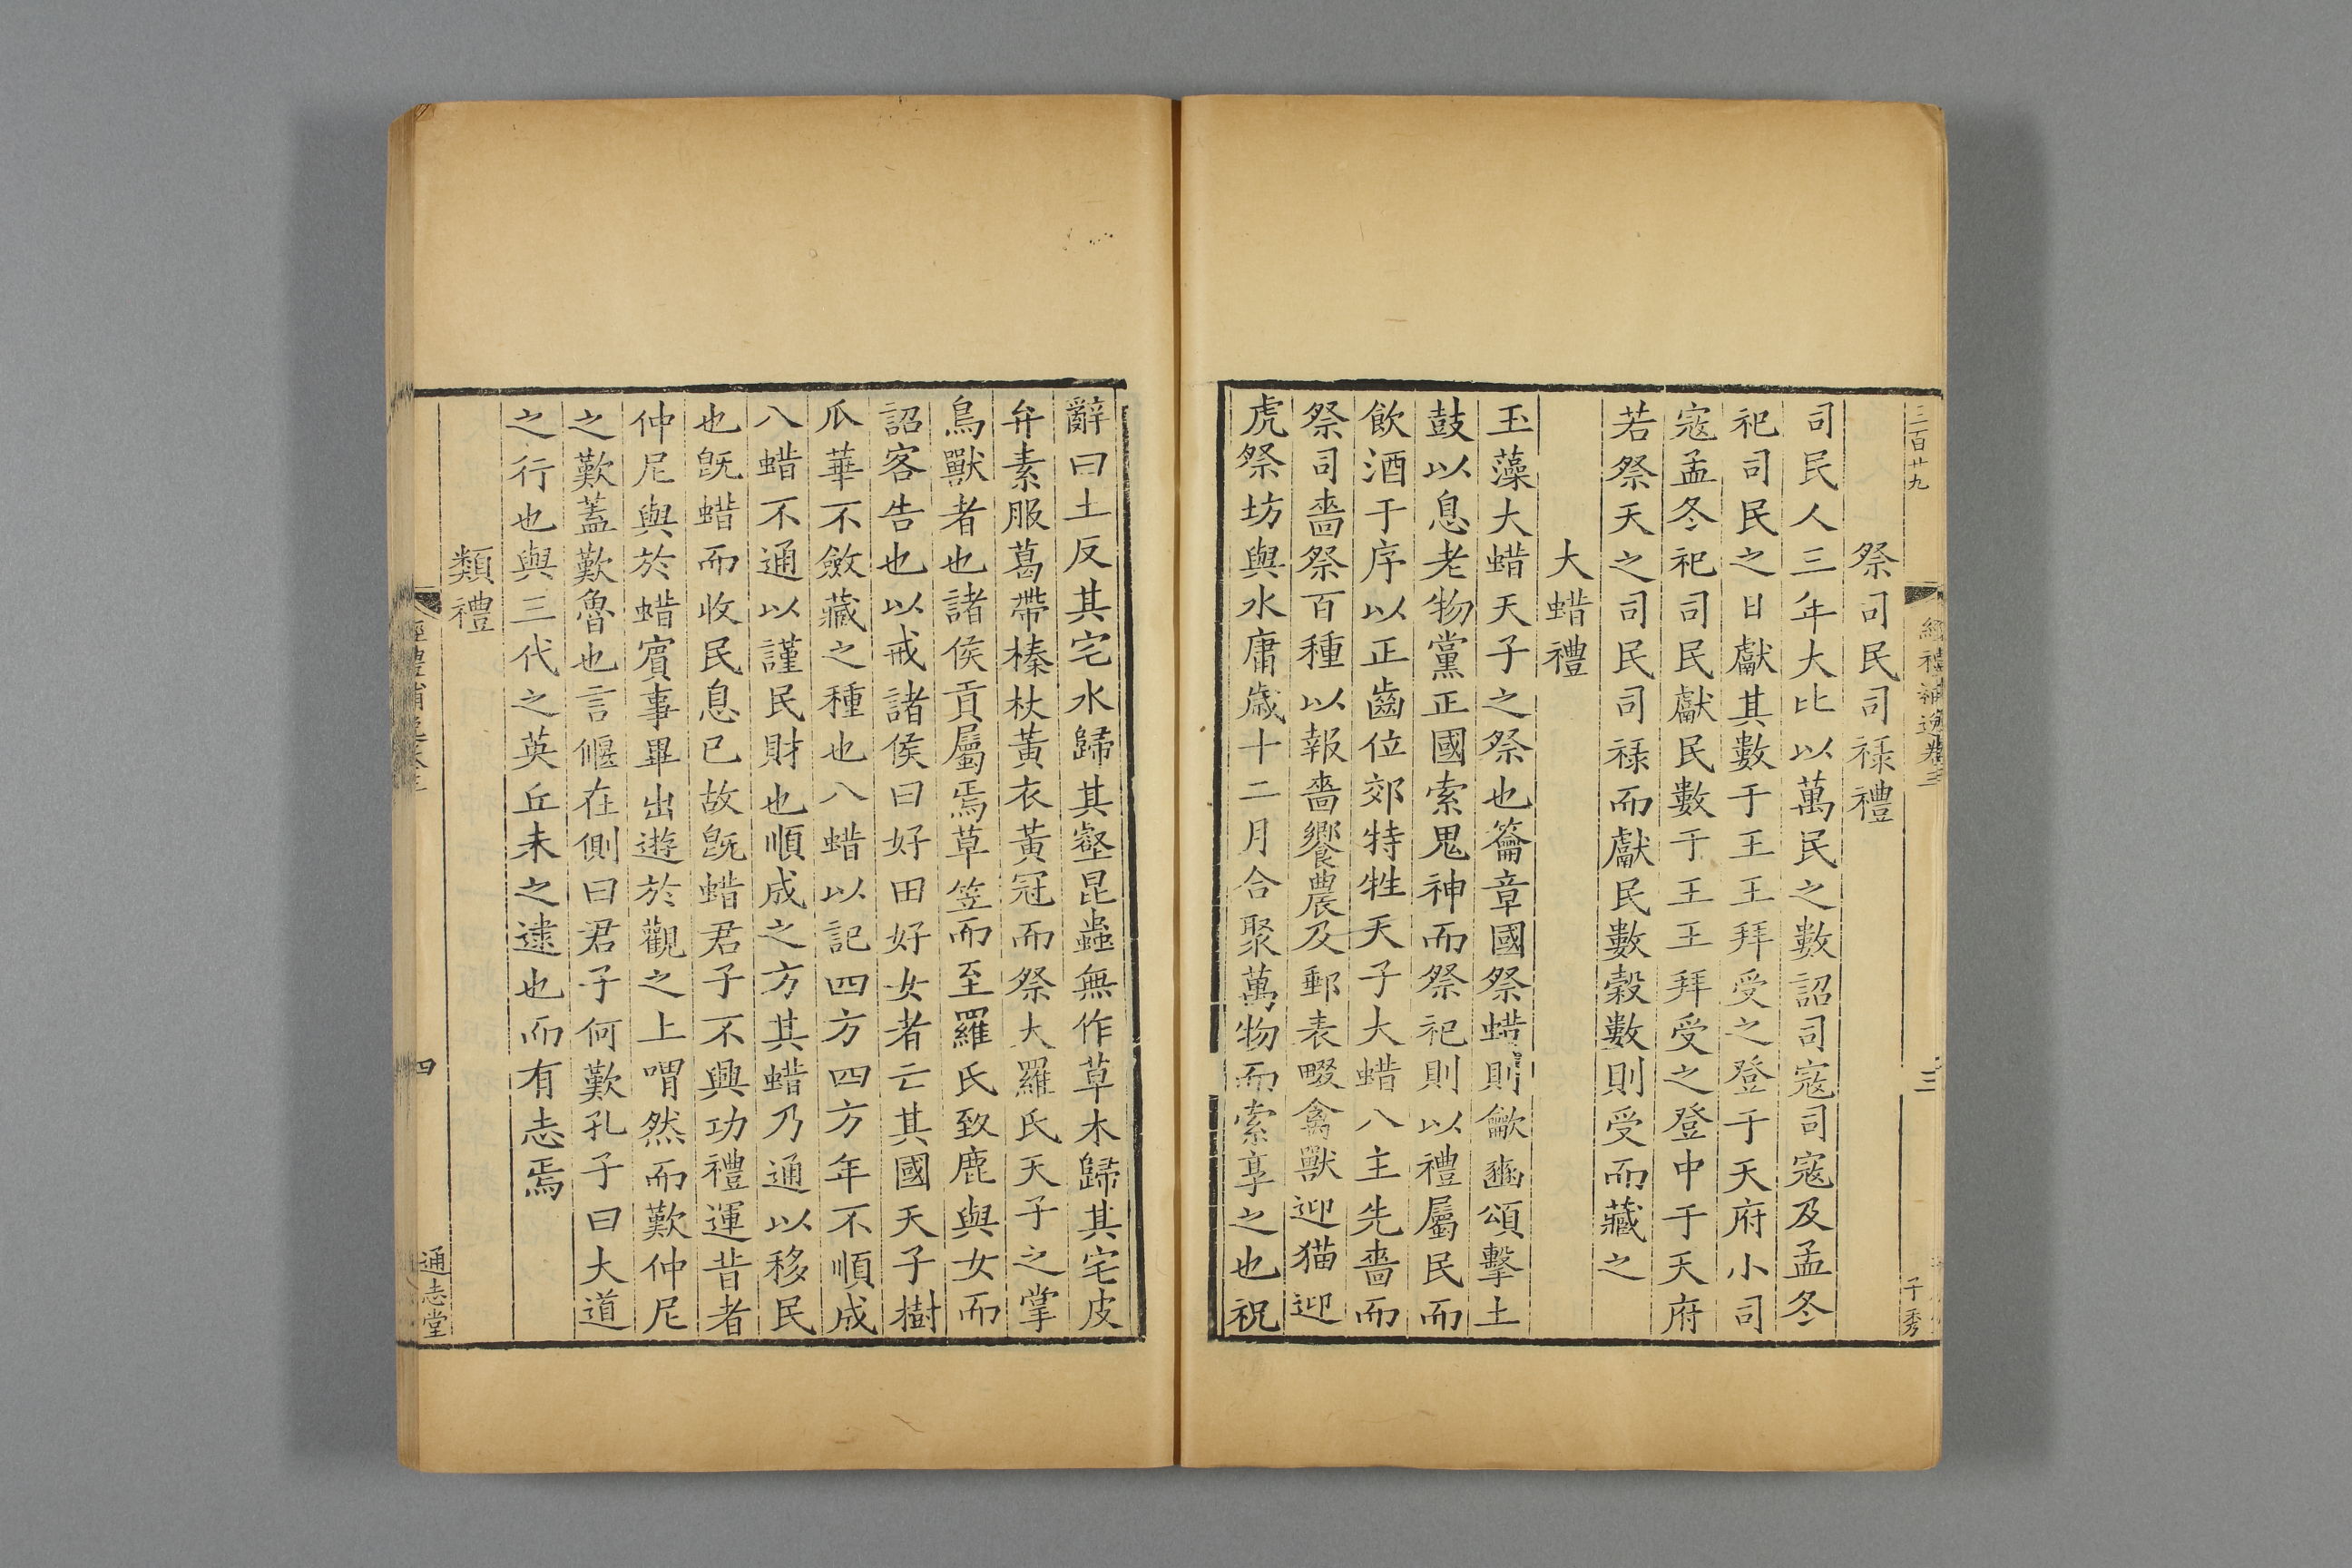 三百廿九
經禮補逸卷三
三
子秀
祭司民司祿禮
司民人三年大比以萬民之數詔司寇司寇及孟冬
祀司民之日獻其數于王王拜受之登于天府小司
寇孟冬祀司民獻民數于王王拜受之登中于天府
若祭天之司民司祿而獻民數穀數則受而藏之
大蜡禮
玉藻大蜡天子之祭也籥章國祭蜡則龡豳頌擊土
鼓以息老物黨正國索鬼神而祭祀則以禮屬民而
飲酒于序以正齒位郊特牲天子大蜡八主先嗇而
祭司嗇祭百種以報嗇饗農及郵表畷禽獸迎猫迎
虎祭坊與水庸歲十二月合聚萬物而索享之也祝
辭曰土反其宅水歸其壑昆蟲無作草木歸其宅皮
弁素服葛帶榛杖黃衣黃冠而祭大羅氏天子之掌
鳥獸者也諸侯貢屬焉草笠而至羅氏致鹿與女而
詔客告也以戒諸侯曰好田好女者亡其國天子樹
瓜華不斂藏之種也八蜡以記四方四方年不順成
八蜡不通以謹民財也順成之方其蜡乃通以移民
也旣蜡而收民息已故旣蜡君子不興功禮運昔者
仲尼與於蜡賓事畢出遊於觀之上喟然而歎仲尼
之歎蓋歎魯也言偃在側曰君子何歎孔子曰大道
之行也與三代之英丘未之逮也而有志焉
類禮
經禮補逸卷三
四
通志堂